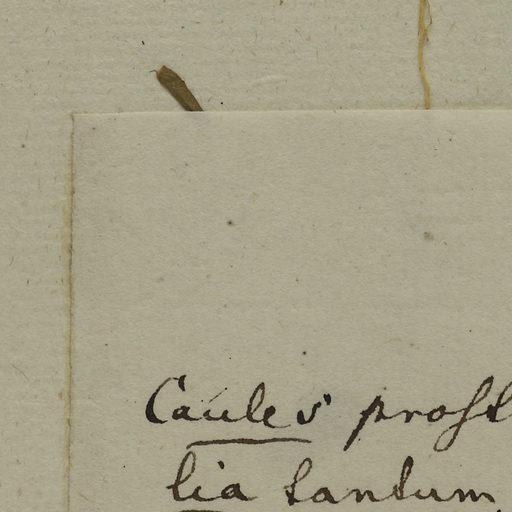 Caules prost
lia tantum